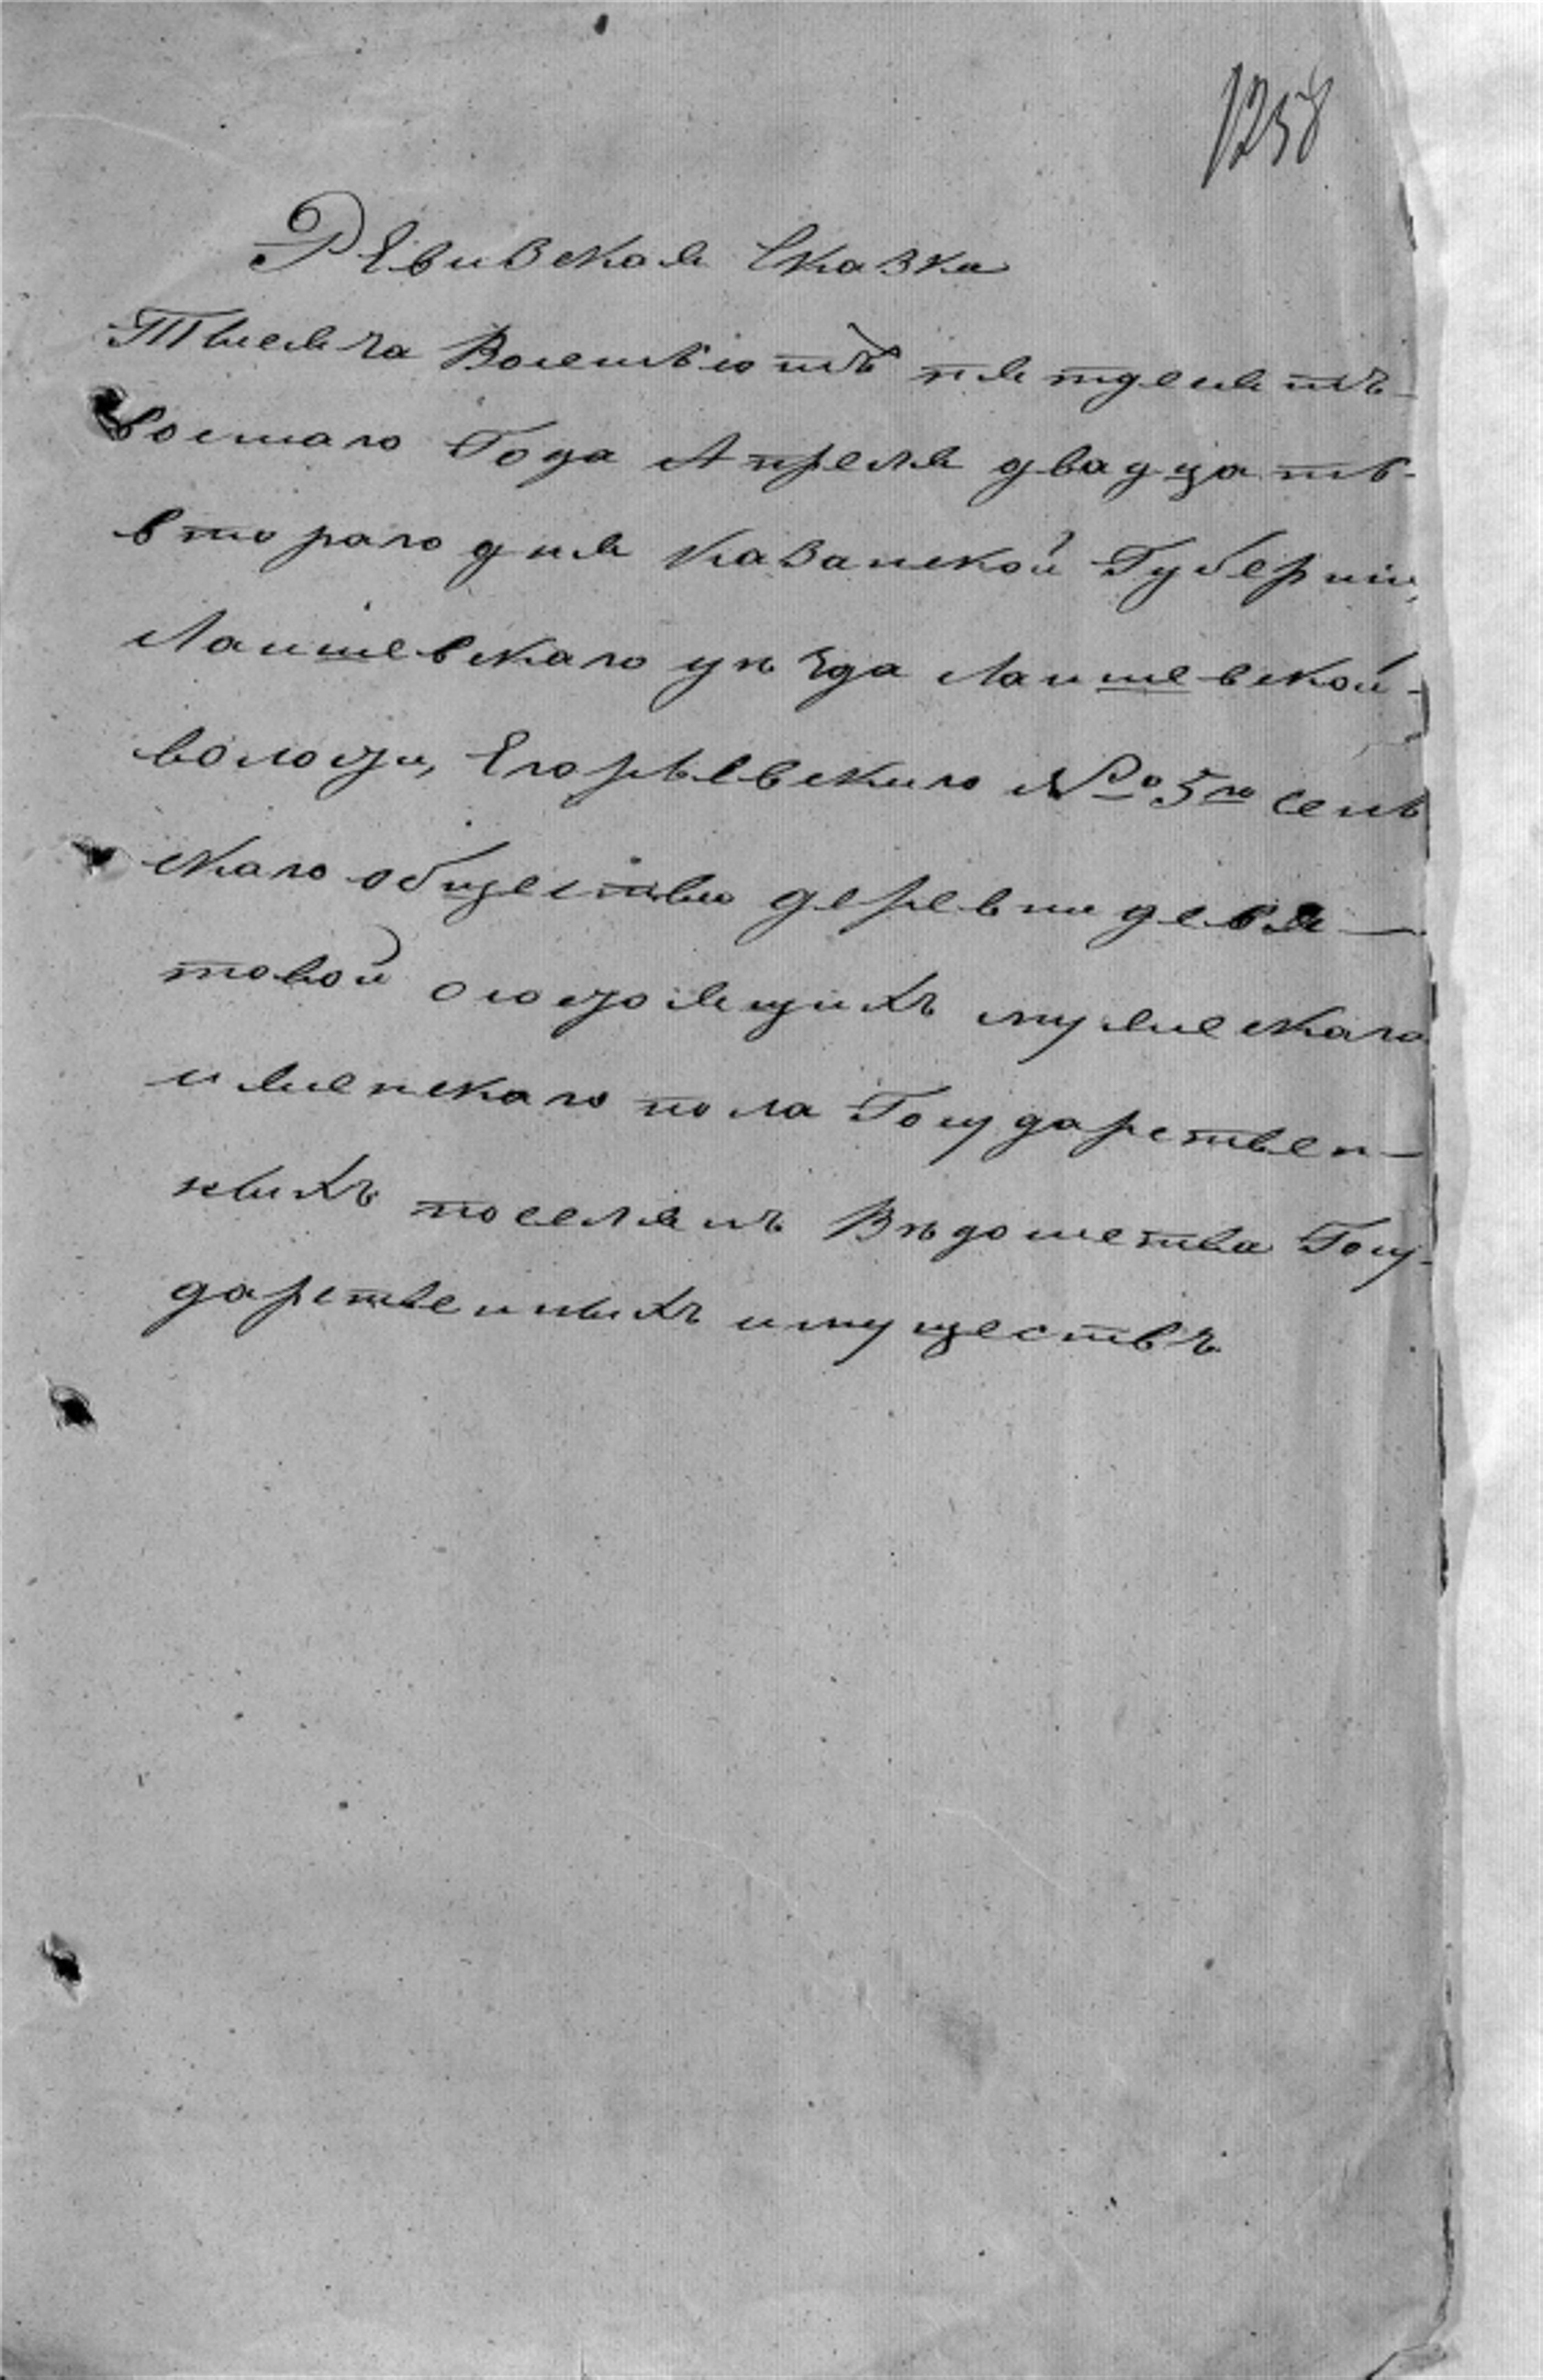 1258
Ревизская Сказка
Тысяча Восемьсотъ пятдесятъ
восмаго Года Апреля двадцать-
втораго дня Казанской Губерніи,
Лаишевскаго уѣзда Лаишевской
волости, Егорьевскаго № 5го сель
скаго общества деревни девя-
товой о состоящихъ мужескаго
и женскаго пола Государствен-
ныхъ поселянъ Вѣдомства Госу-
дарственныхъ имуществъ